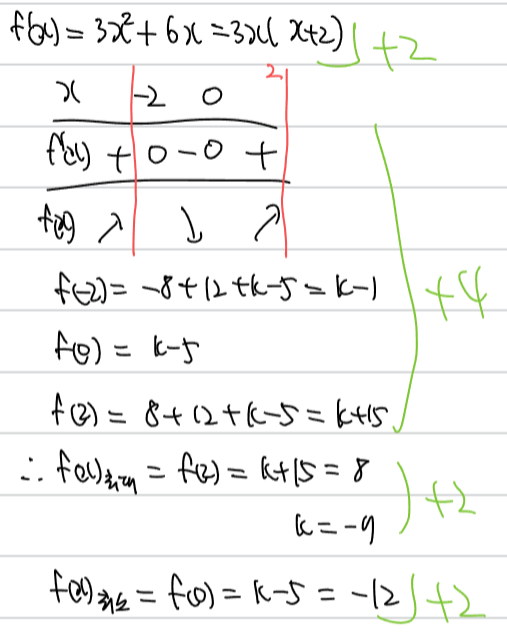 f'(x) = 3x² + 6x = 3x(x+2) +2
x -2 0 2
f'(x) + 0 - 0 +
f(x) ↗ ↘ ↗
f(-2) = -8+12+k-5 = k-1
f(0) = k-5
+4
f(2) = 8+12+k-5 = k+15
∴ f(x)최대 = f(2) = k+15 = 8
k = -9 +2
f(x)최소 = f(0) = k-5 = -12 +2